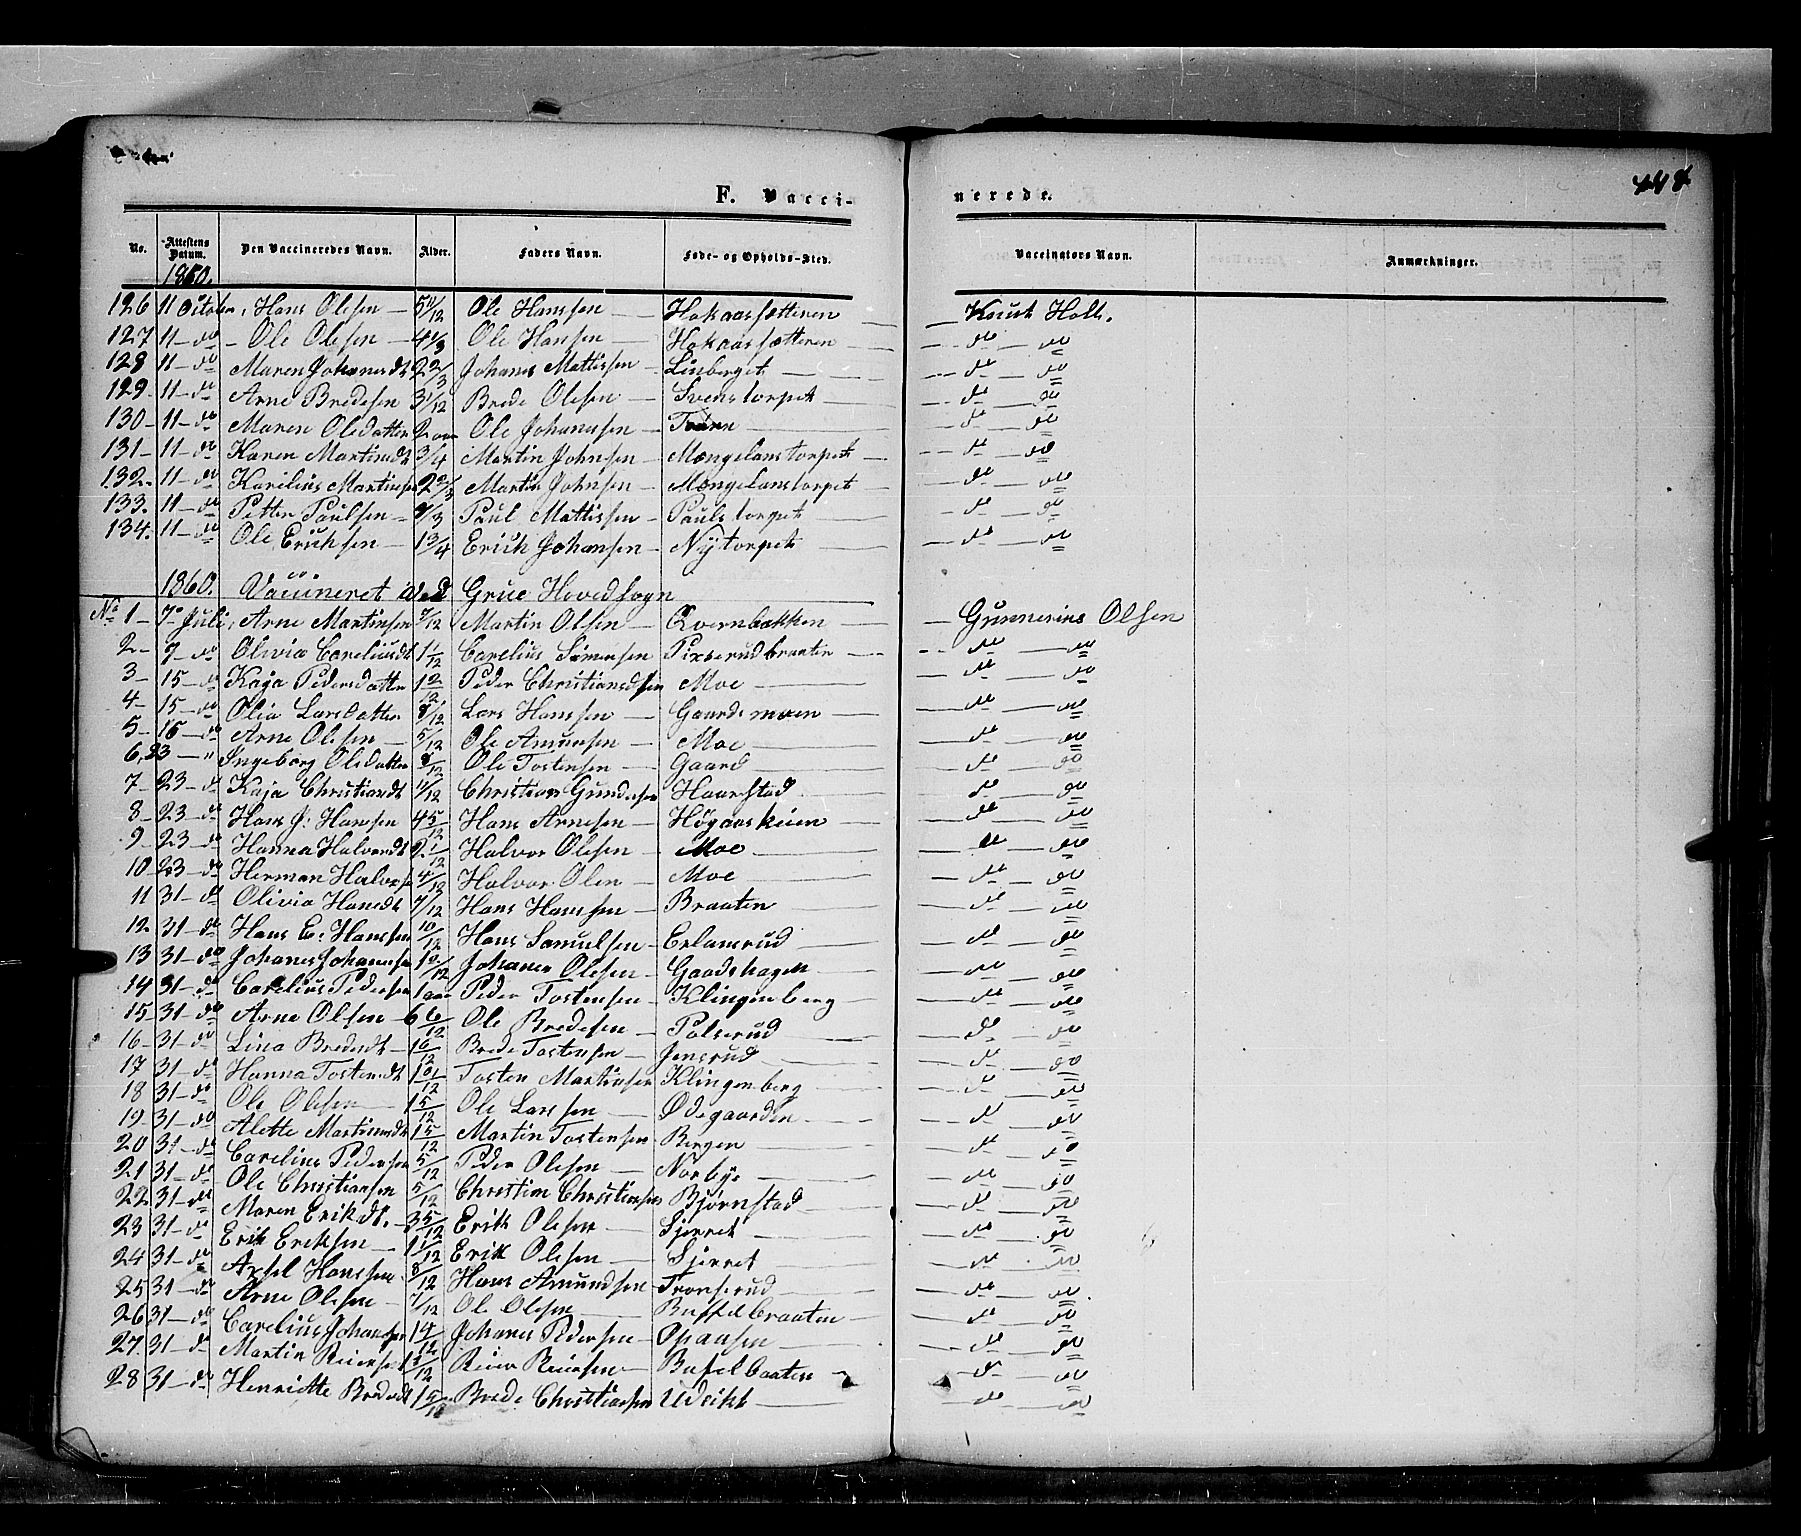 448
F. Vacci-
nerede.
No. Attestens Datum. Den Vaccineredes Navn. Alder. Faders Navn. Føde- og Opholds-Sted. Vaccinators Navn. Anmærkninger.
1860.
126 11 October, Hans Olesen 5 10/12 Ole Hanssen Hokaassætteren Knut Holt.
127 11 do Ole Olesen 4 1/3 Ole Hansen Hokaassætteren do do
128 11 do Maren Johannesdt 2 2/3 Johanes Mattissen Linberget do do
129 11 do Arne Bredesen 3 1/12 Brede Olesen Svenstorpet do do
130 11 do Maren Olsdatter 2 aar Ole Johannsen do do
131 11 do Karen Martinsdt 3/4 Martin Johnsen Mengelanstorpet do do
132 11 do Karelius Martinsen 2 2/3 Martin Johnsen Mengelanstorpet do do
133 11 do Petter Paulsen /3 Paul Mattissen Paulstorpet do do
134 11 do Ole Erichsen 1 3/4 Erich Johansen Nytorpet do do
1860. Vaccineret ved Grue Hovedsogn
No 1 7 Juli, Arne Martinsen 7/12 Martin Olsen Qvernbækken Gunnerius Olsen
2 7 do Olivia Careliusdt 1 1/12 Carelius Simensen Pixerudbraaten do do
3 15 do Kaja Pedersdatter 1 2/12 Peder Christiansen Moe do do
4 15 do Olia Larsdatter 8/12 Lars Hanssen Gaardsmoen do do
5 16 do Arne Olesen 5/12 Ole Amunsen Moe do do
6 23 " Ingeborg Olsdatter 8/12 Ole Tostensen Gaard do do
7 23 do Kaja Christiansdt 11/12 Christian Gundersen Haarstad do do
8 23 do Hans J. Hanssen 4 5/12 Hans Arnesen Høgaaskeien do do
9 23 do Hanna Halvorsdt 2 1/12 Halvor Olesen Moe do do
10 23 do Herman Halvorsen 4/12 Halvor Olen Moe do do
11 31 do Olivia Hansdt 7/12 Hans Hanssen Braaten do do
12 31 do Hans E. Hanssen 10/12 Hans Samuelsen Erlansrud do do
13 31 do Johanes Johannsen 1 9/12 Johanes Olesen Gaadshagen do do
14 31 do Carelius Pedersen 1 aar Peder Tostensen Klingenberg do do
15 31 do Arne Olsen 6 6/12 Ole Bredesen Polserud do do
16 31 do Lina Bredesdt 1 6/12 Brede Tostensen Jensrud do do
17 31 do Hanna Tostensdt 10/12 Tosten Martinsen Klingenberg do do
18 31 do Ole Olesen 1 5/12 Ole Larssen Ødegaarden do do
19 31 do Alette Martinsdt 1 5/12 Martin Tostensen Bergen do do
20 31 do Carelius Pedersen 5/12 Peder Olesen Norbye do do
21 31 do Ole Christiansen 5/12 Christian Christiansen Bjørnstad do do
22 31 do Maren Eriksdt. 3 5/12 Erik Olesen Sjerret do do
23 31 do Erik Eriksen 1 1/12 Erik Olesen Sjerret do do
24 31 do Axsel Hanssen 8/12 Hans Amundsen Tronserud do do
25 31 do Arne Olesen 7/12 Ole Olesen Buffelbraaten do do
26 31 do Carelius Johansen 1 4/12 Johanes Pedersen Opaasen do do
27 31 do Martin Reiersen 1 5/12 Reier Reiersen Buffelbaaten do do
28 31 do Henriette Bredesdt 1 5/12 Brede Christiansen Udsikt do do